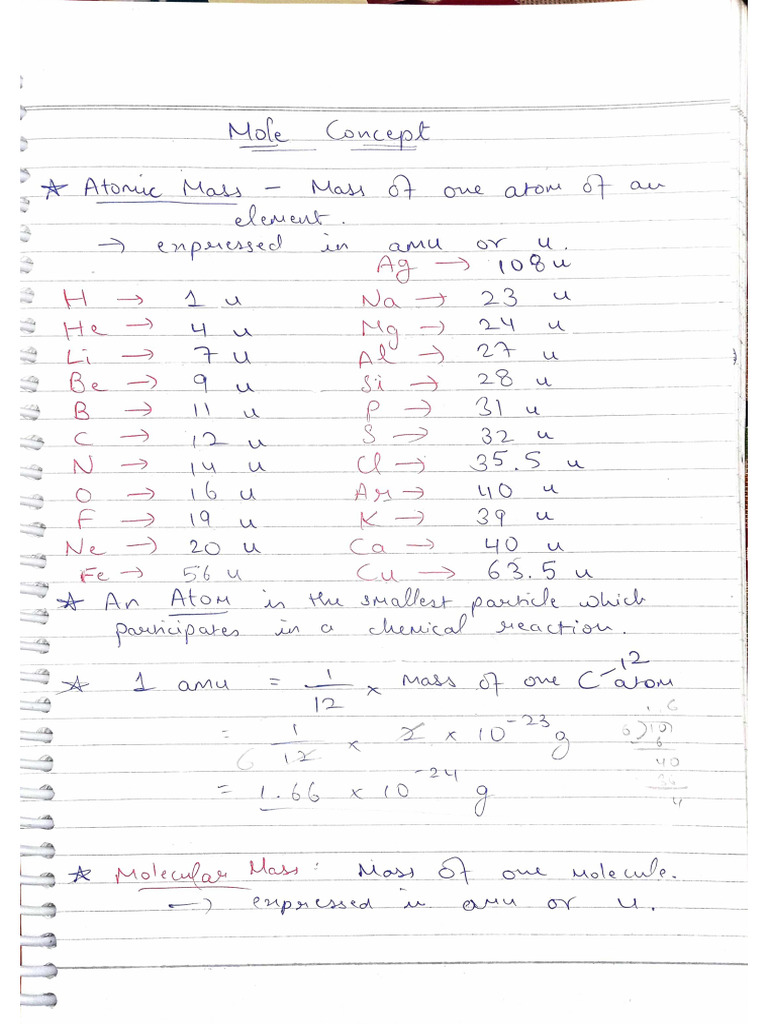 Mole Concept
☆ Atomic Mass - Mass of one atom of an
element.
→ expressed in amu or u.
Ag → 108 u
H → 1 u Na → 23 u
He → 4 u Mg → 24 u
Li → 7 u Al → 27 u
Be → 9 u Si → 28 u
B → 11 u P → 31 u
C → 12 u S → 32 u
N → 14 u Cl → 35.5 u
O → 16 u Ar → 40 u
F → 19 u K → 39 u
Ne → 20 u Ca → 40 u
Fe → 56 u Cu → 63.5 u
☆ An Atom is the smallest particle which
participates in a chemical reaction.
☆ 1 amu = 1/12 × Mass of one C-12 atom
= 1/12 × 2 × 10⁻²³ g
6
= 1.66 × 10⁻²⁴ g
1.6
6)10
6
40
36
4
☆ Molecular Mass: Mass of one molecule.
↪ expressed in amu or u.